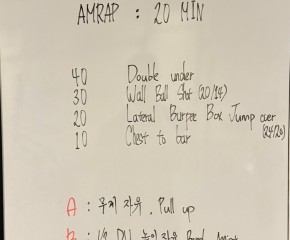 AMRAP : 20 MIN
40 Double under
30 Wall Ball Shot (20/14)
20 Lateral Burpee Box Jump over
(24/20)
10 Chest to bar
A : 무게 자유 , Pull up
B : 1/2 DU